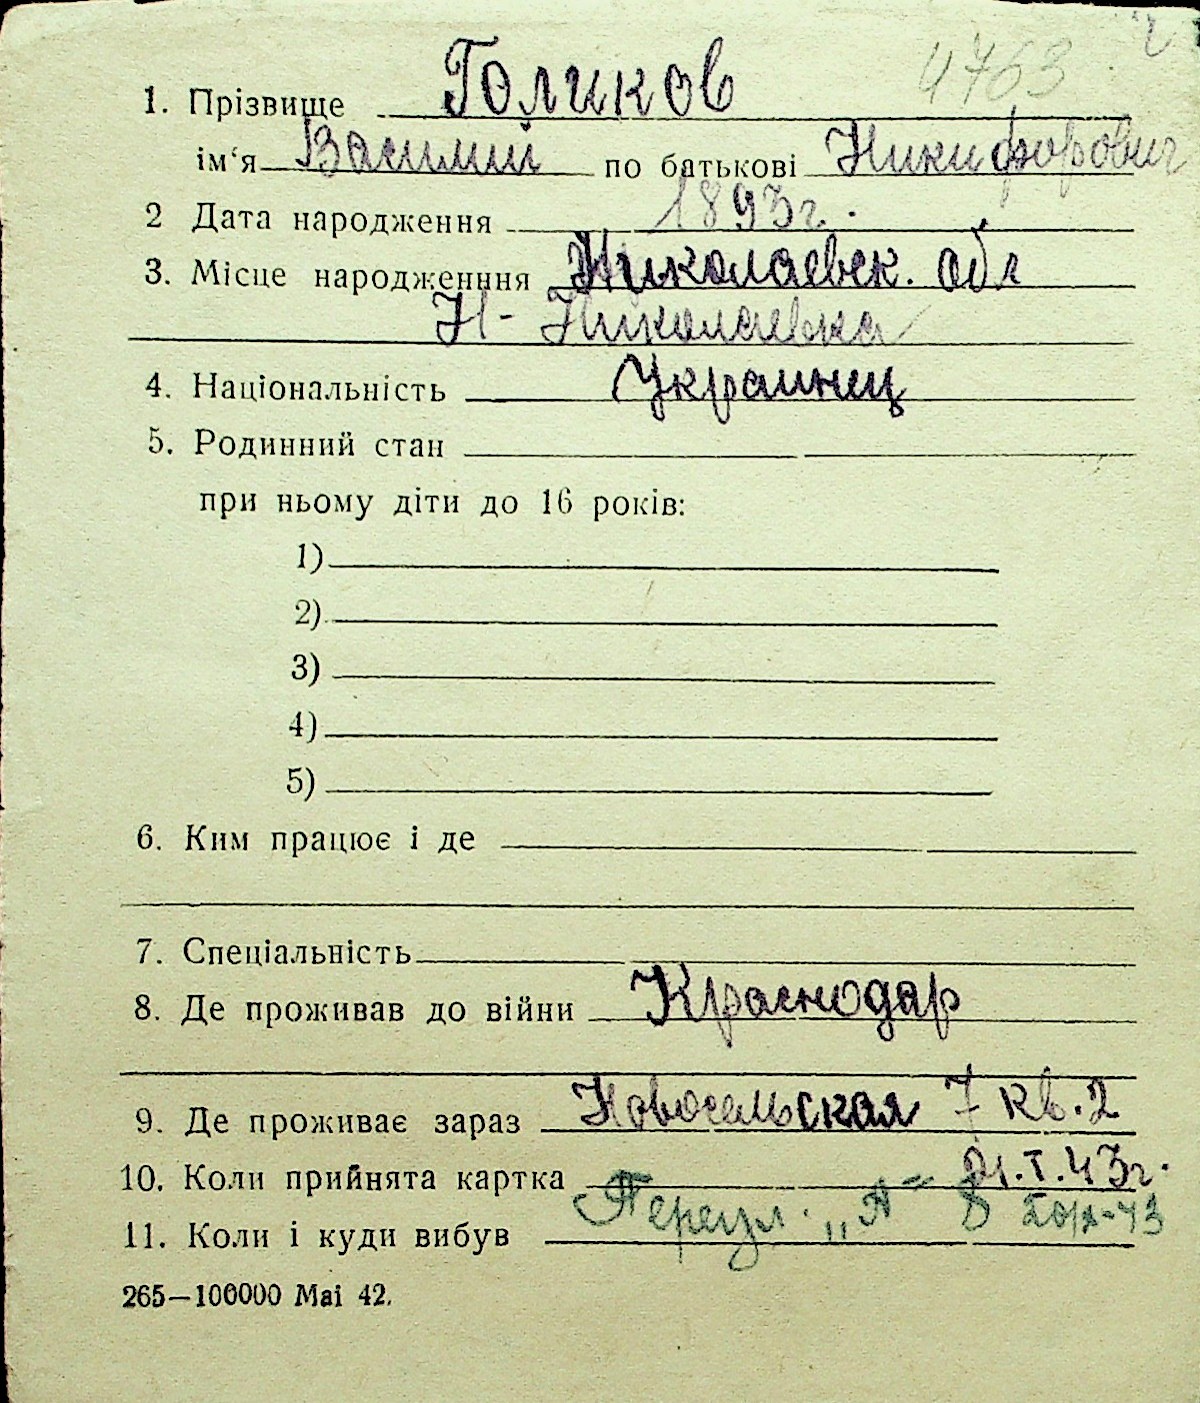 4763
1. Прізвище Голиков
ім‘я Василий по батькові Никифорович
2 Дата народження 1893г.
3. Місце народженння Николаевск. обл
Н-Николаевка
4. Національність Украинец
5. Родинний стан
при ньому діти до 16 років:
1)
2)
3)
4)
5)
6. Ким працює і де
7. Спеціальність
8. Де проживав до війни Краснодар
9. Де проживає зараз Новосельская 7 кв. 2
10. Коли прийнята картка 21.I.43г.
11. Коли і куди вибув Переул. „А“ 8
265—100000 Маі 42.